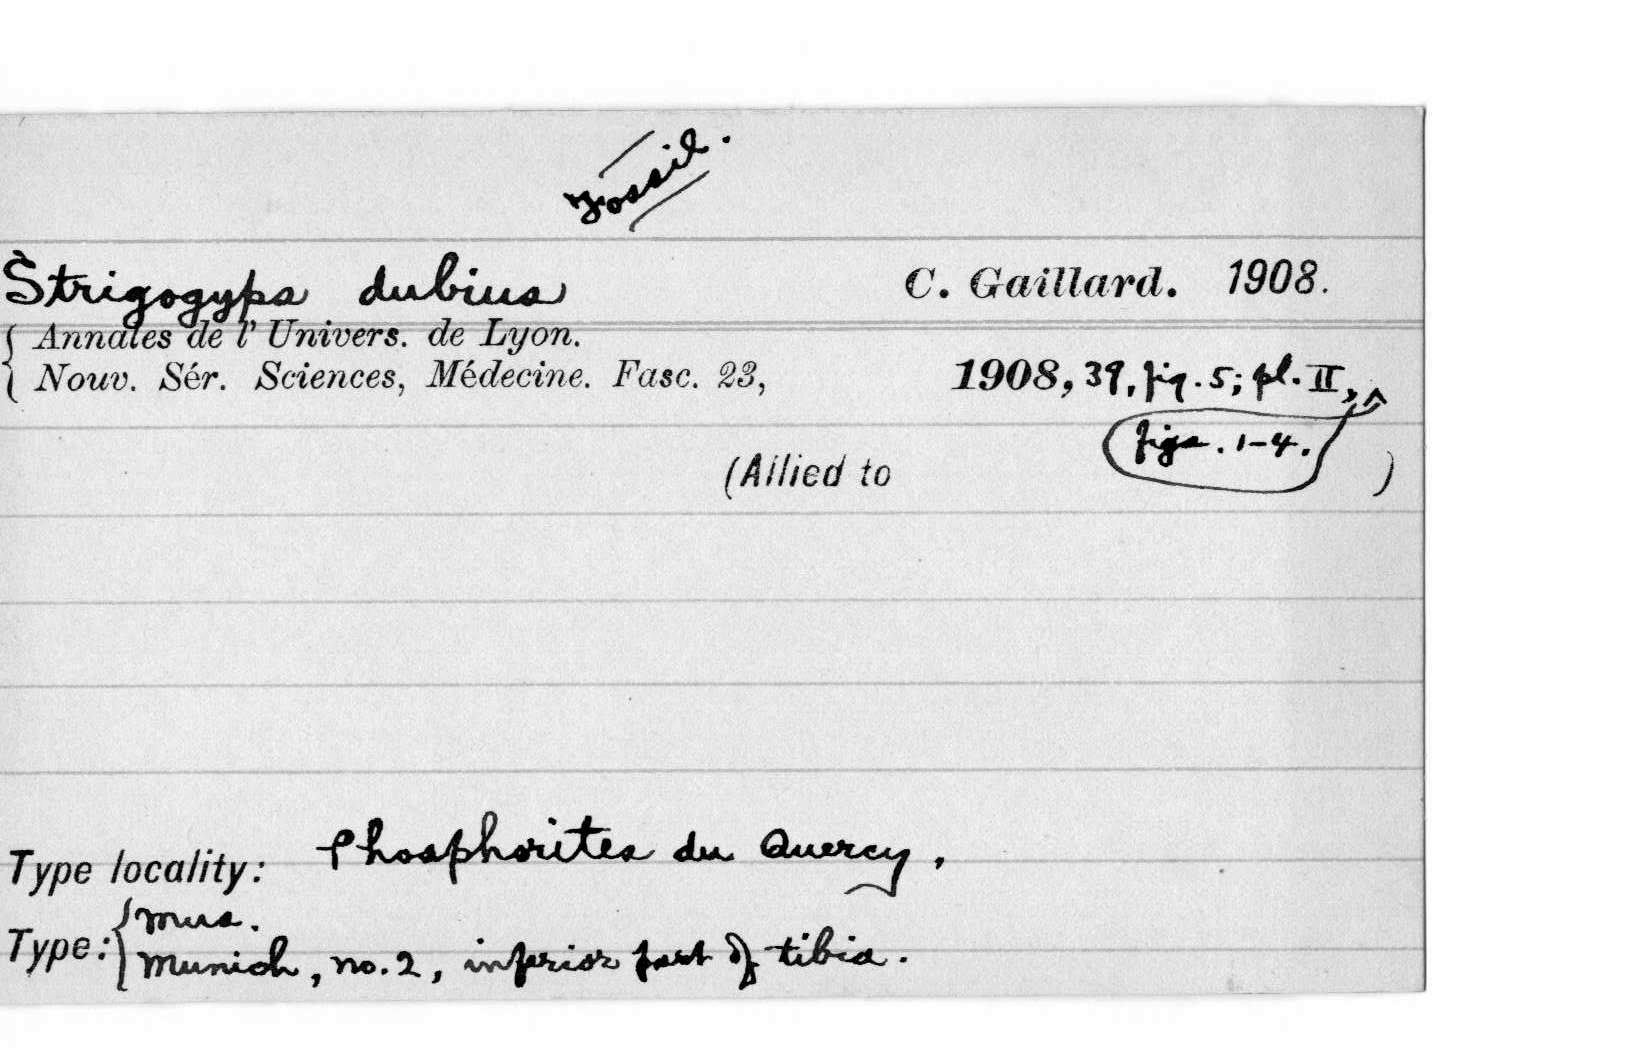 Fossil.
Strigogyps dubius C. Gaillard. 1908.
Annales de l' Univers. de Lyon.
Nouv. Sér. Sciences, Médecine. Fasc. 23, 1908, 39, fig. 5; pl. II,
figs. 1-4.
(Allied to )
Type locality: Phosphorites du Quercy.
Type: Mus.
Munich, no. 2, inferior part of tibia.